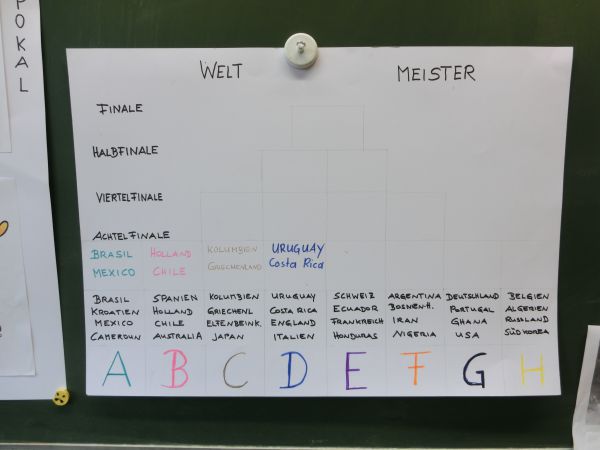 POKAL
WELT MEISTER
FINALE
HALBFINALE
VIERTELFINALE
ACHTELFINALE
BRASIL HOLLAND KOLUMBIEN URUGUAY
MEXICO CHILE GRIECHENLAND Costa Rica
BRASIL SPANIEN KOLUMBIEN URUGUAY SCHWEIZ ARGENTINA DEUTSCHLAND BELGIEN
KROATIEN HOLLAND GRIECHENL. COSTA RICA ECUADOR BOSNEN-H. PORTUGAL ALGERIEN
MEXICO CHILE ELFENBEINK. ENGLAND FRANKREICH IRAN GHANA RUSSLAND
CAMEROUN AUSTRALIA JAPAN ITALIEN HONDURAS NIGERIA USA SÜDKOREA
A B C D E F G H